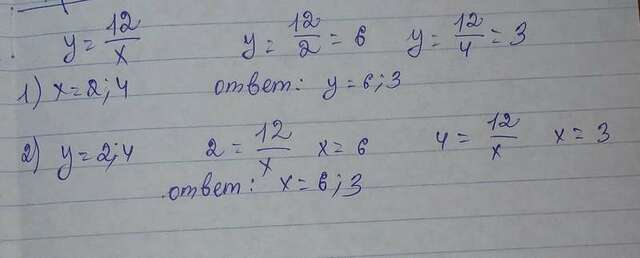 y = 12/x y = 12/2 = 6 y = 12/4 = 3
1) x = 2; 4 ответ: y = 6; 3
2) y = 2; 4 2 = 12/x x = 6 4 = 12/x x = 3
ответ: x = 6; 3